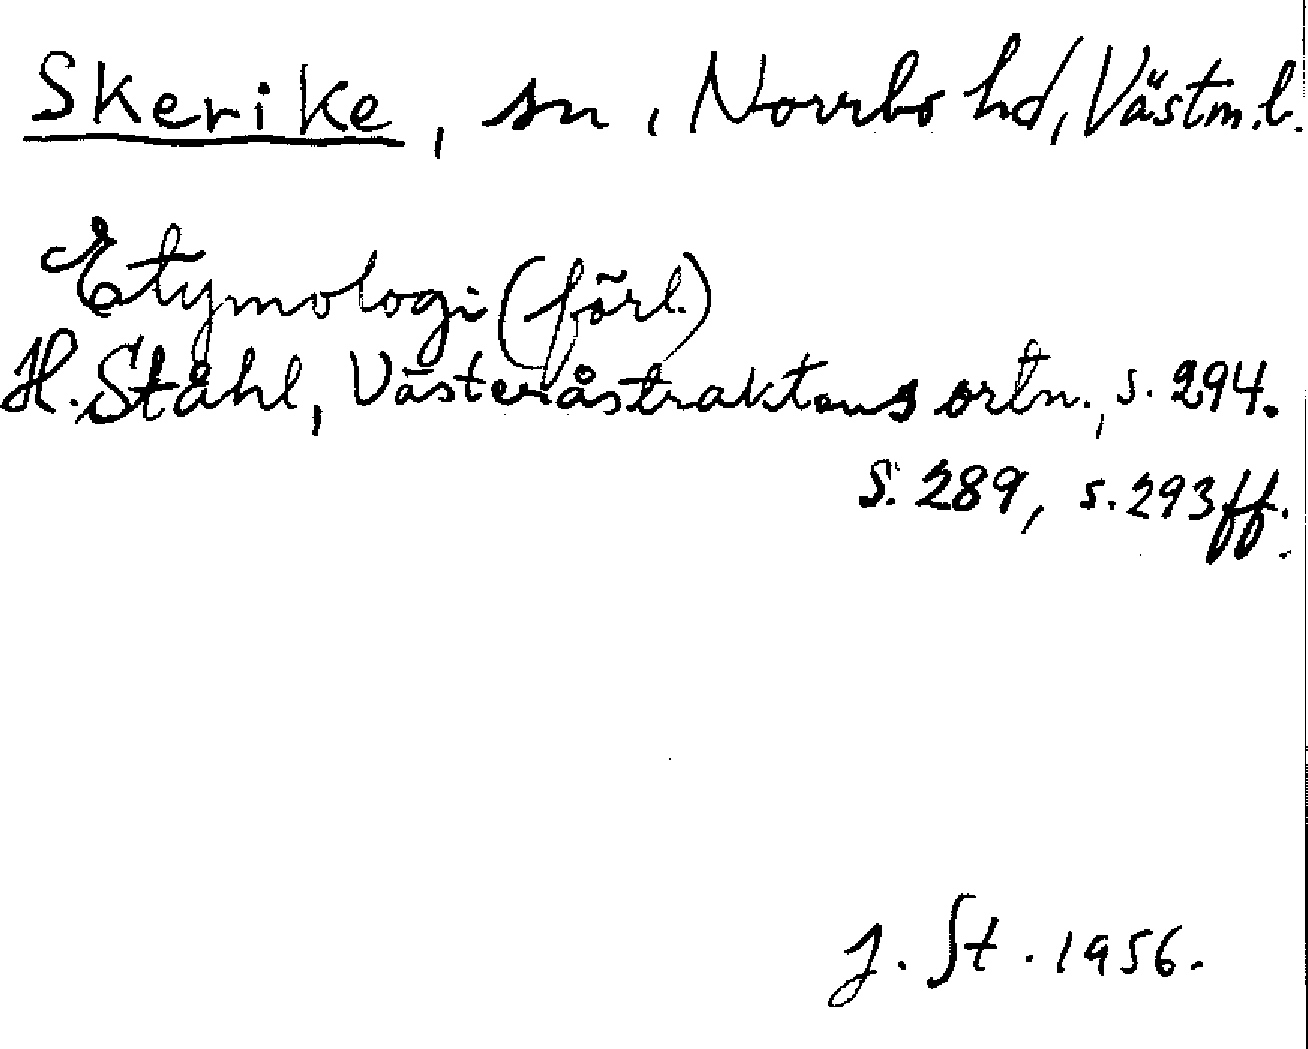 Skerike, sn, Norrbo hd, Västm. l.
Etymologi (förl.)
H. Ståhl, Västeråstraktens ortn., s. 294.
S. 289, s. 293 ff.
J. St. 1956.